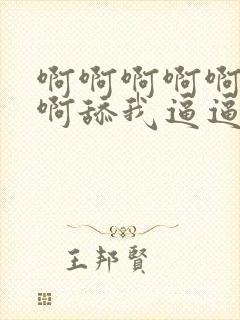 啊啊啊啊啊
啊舔我逼逼
王邦賢